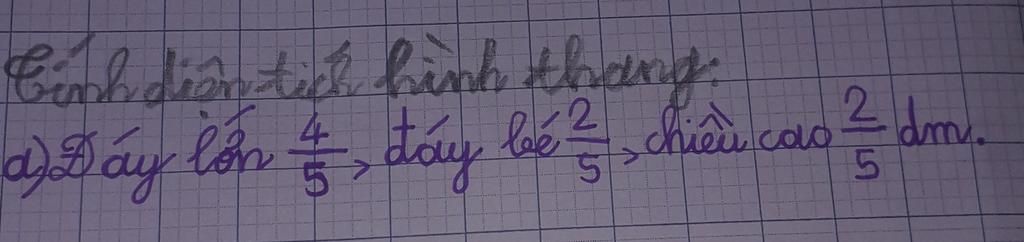 Tính diện tích hình thang:
a) Đáy lớn 4/5, đáy bé 2/5, chiều cao 2/5 dm.